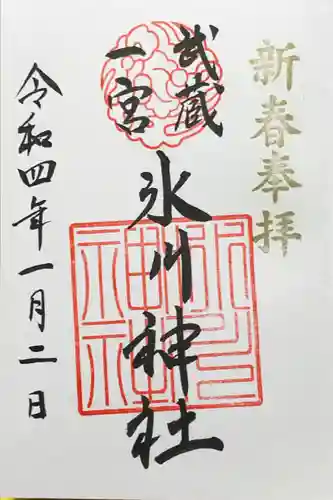 新春奉拝
武蔵
一宮
氷川神社
令和四年一月二日